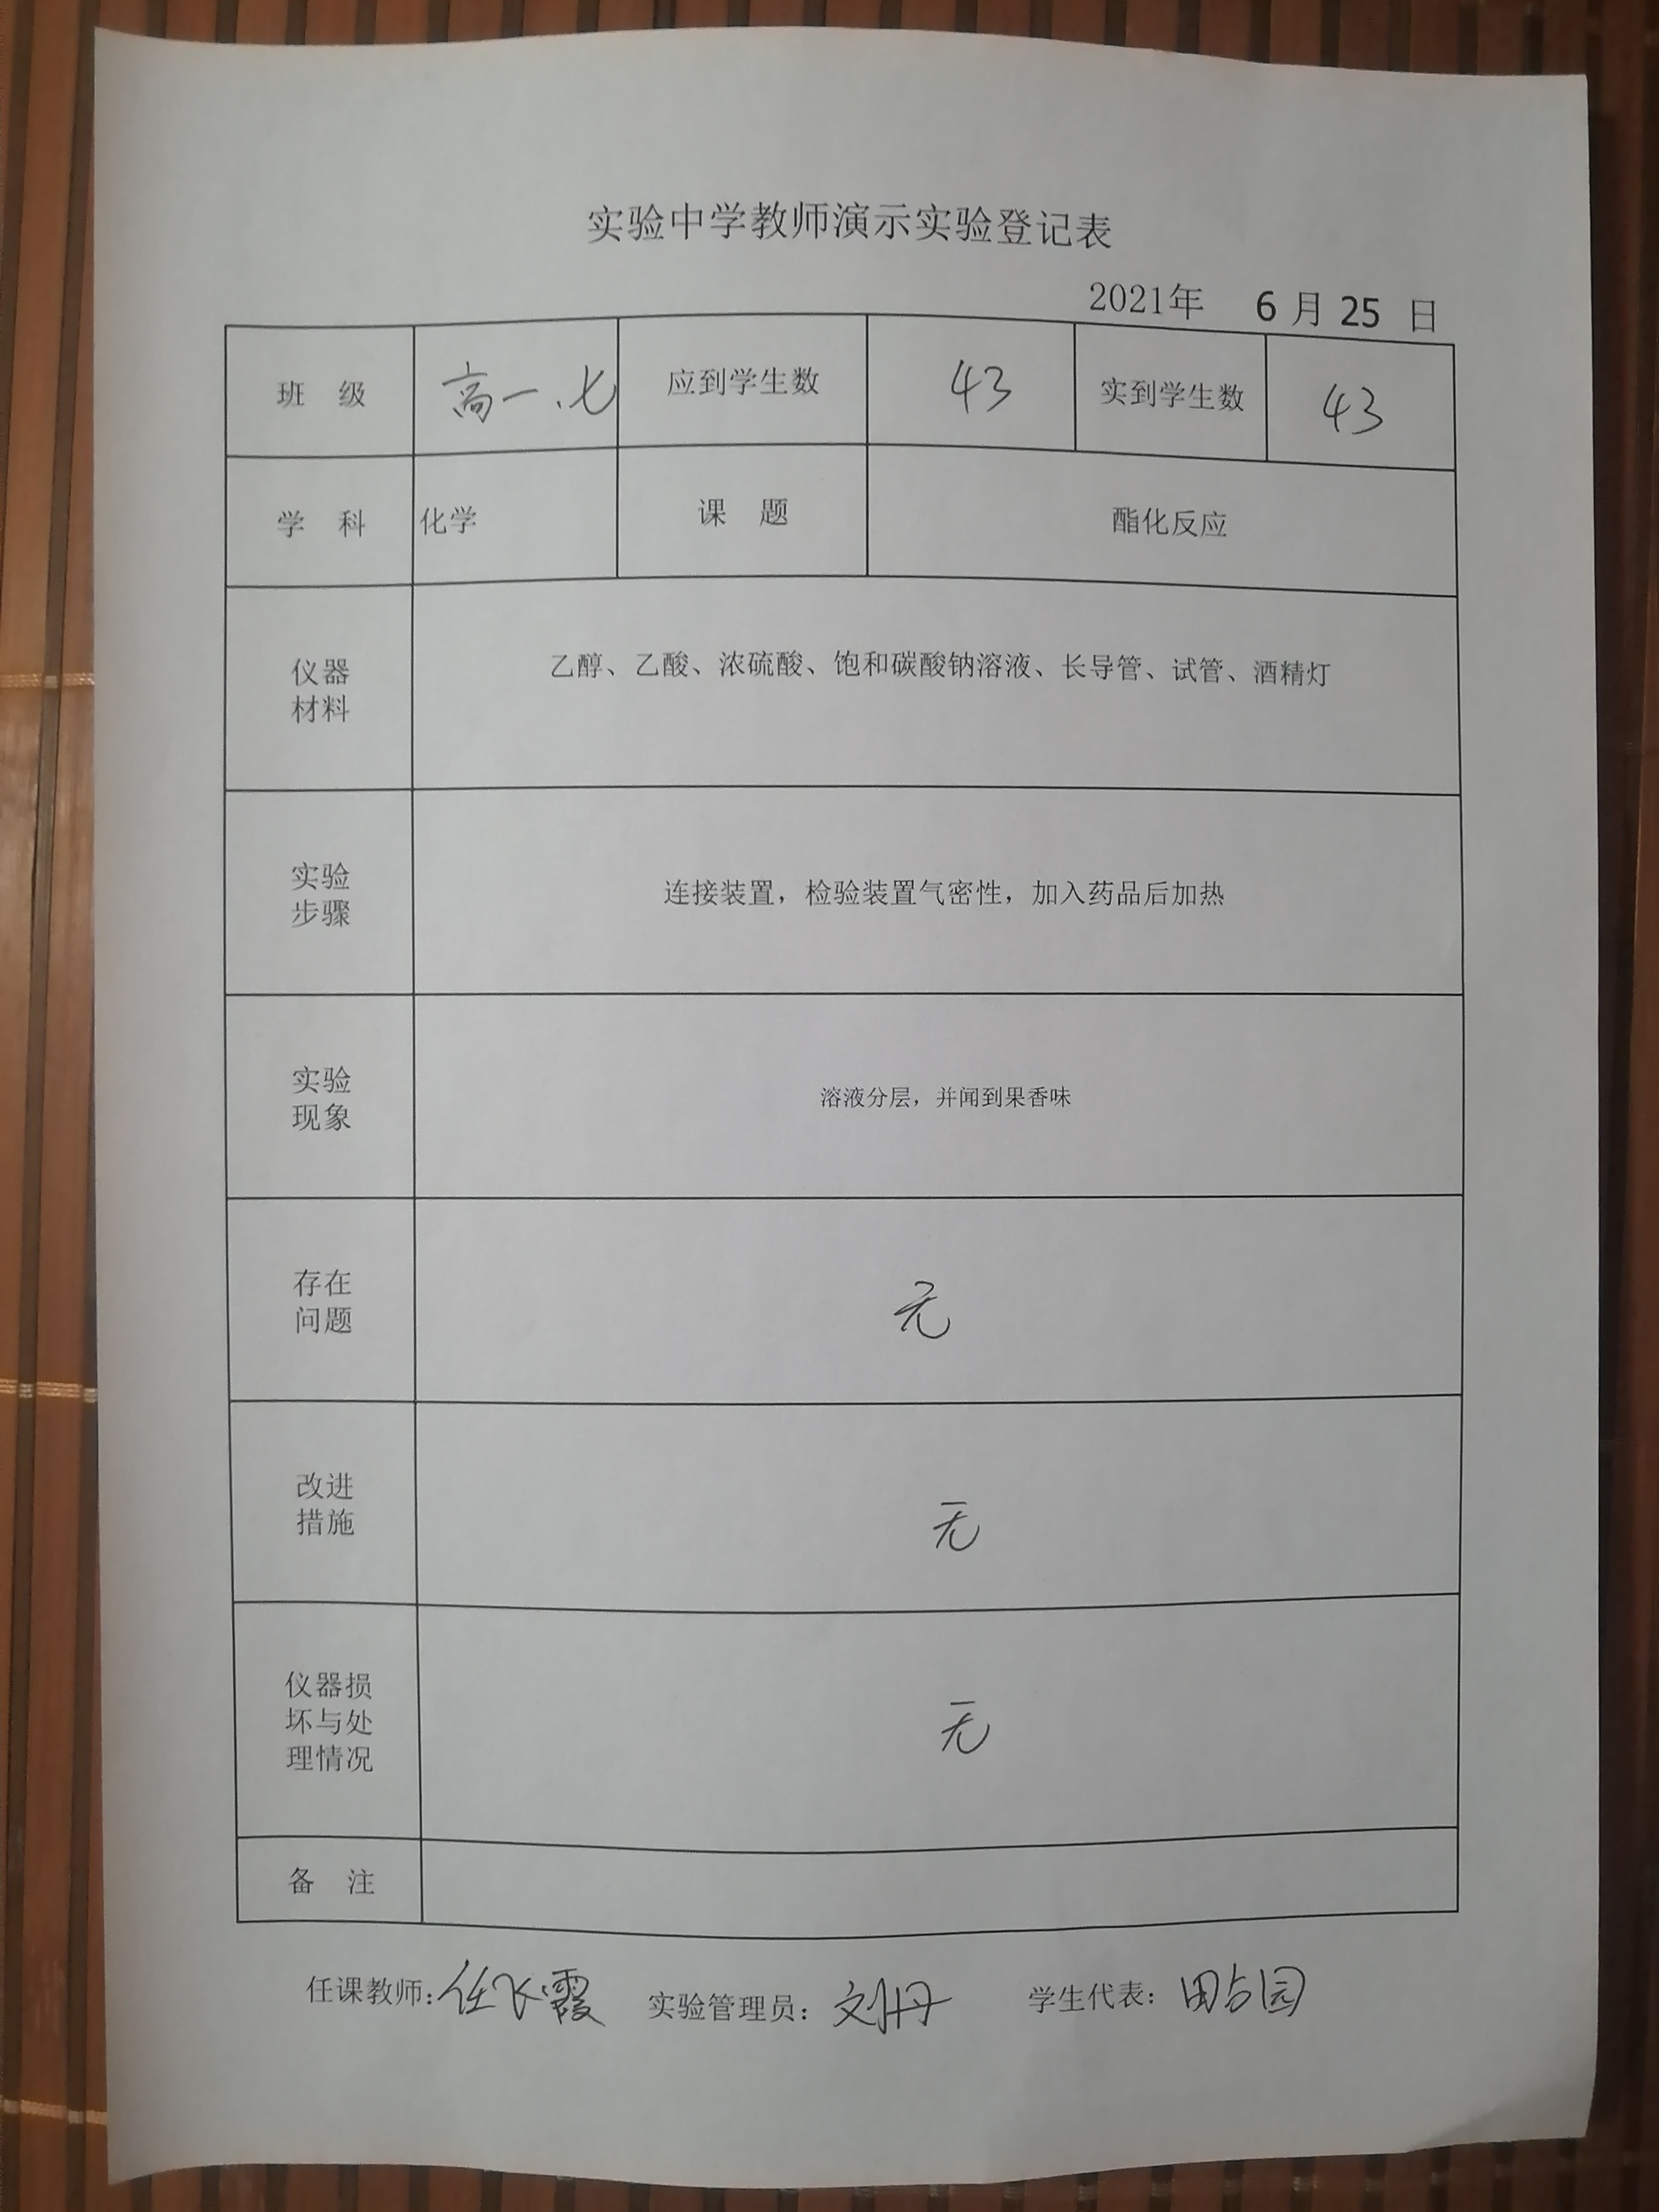 实验中学教师演示实验登记表
2021年 6 月 25 日
班 级 高一.七 应到学生数 43 实到学生数 43
学 科 化学 课 题 酯化反应
仪器
材料
乙醇、乙酸、浓硫酸、饱和碳酸钠溶液、长导管、试管、酒精灯
实验
步骤
连接装置，检验装置气密性，加入药品后加热
实验
现象
溶液分层，并闻到果香味
存在
问题
无
改进
措施
无
仪器损
坏与处
理情况
无
备 注
任课教师：任飞霞 实验管理员：刘丹 学生代表：田占园